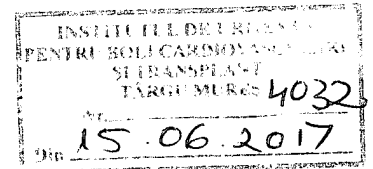 INSTITUTUL DE URGENȚĂ
PENTRU BOLI CARDIOVASCULARE
ȘI TRANSPLANT
TÂRGU MUREȘ
Nr. 4032
Din 15.06.2017